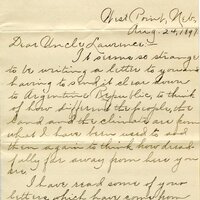 West Point, Neb.
Aug. 24, 189
Dear Uncle Lawrence:-
It seems so strange
to be writing a letter to you and
having to send it clear down
to Argentine Republic, to think
of how different the people, the
land and the climate are from
what I have been used to and
then again to think how dread-
fully far away from here you
are.
I have read some of your
letters which have come from